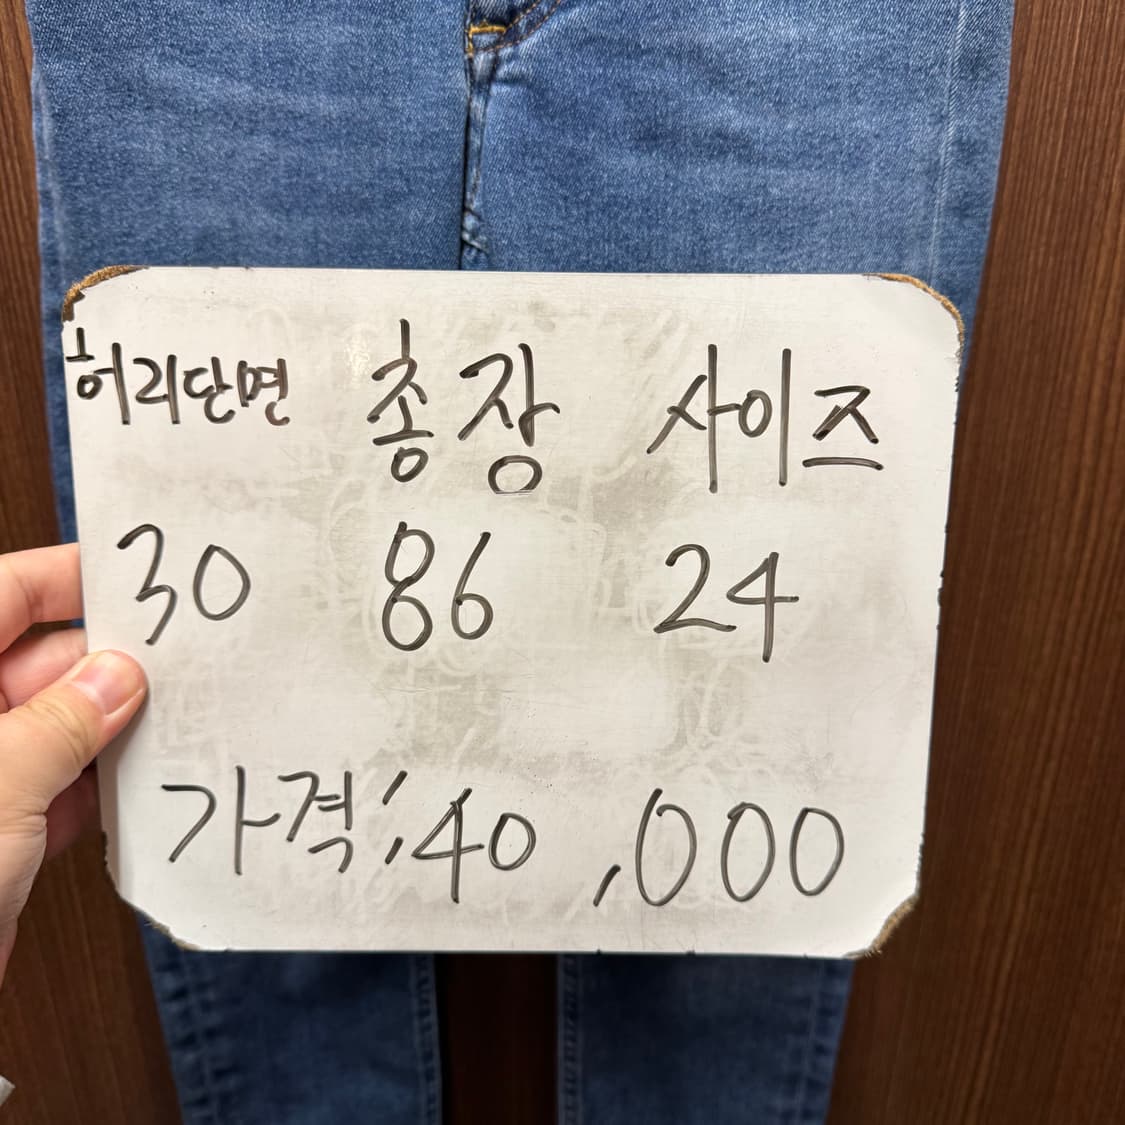 허리단면 총장 사이즈
30 86 24
가격: 40,000